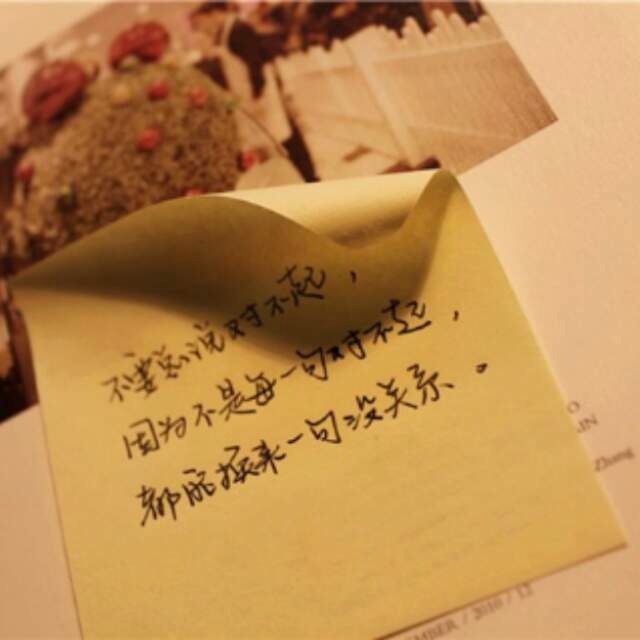 不要总说对不起，
因为不是每一句对不起，
都能换来一句没关系。
O
IN
Zhang
MBER / 2010 / 12